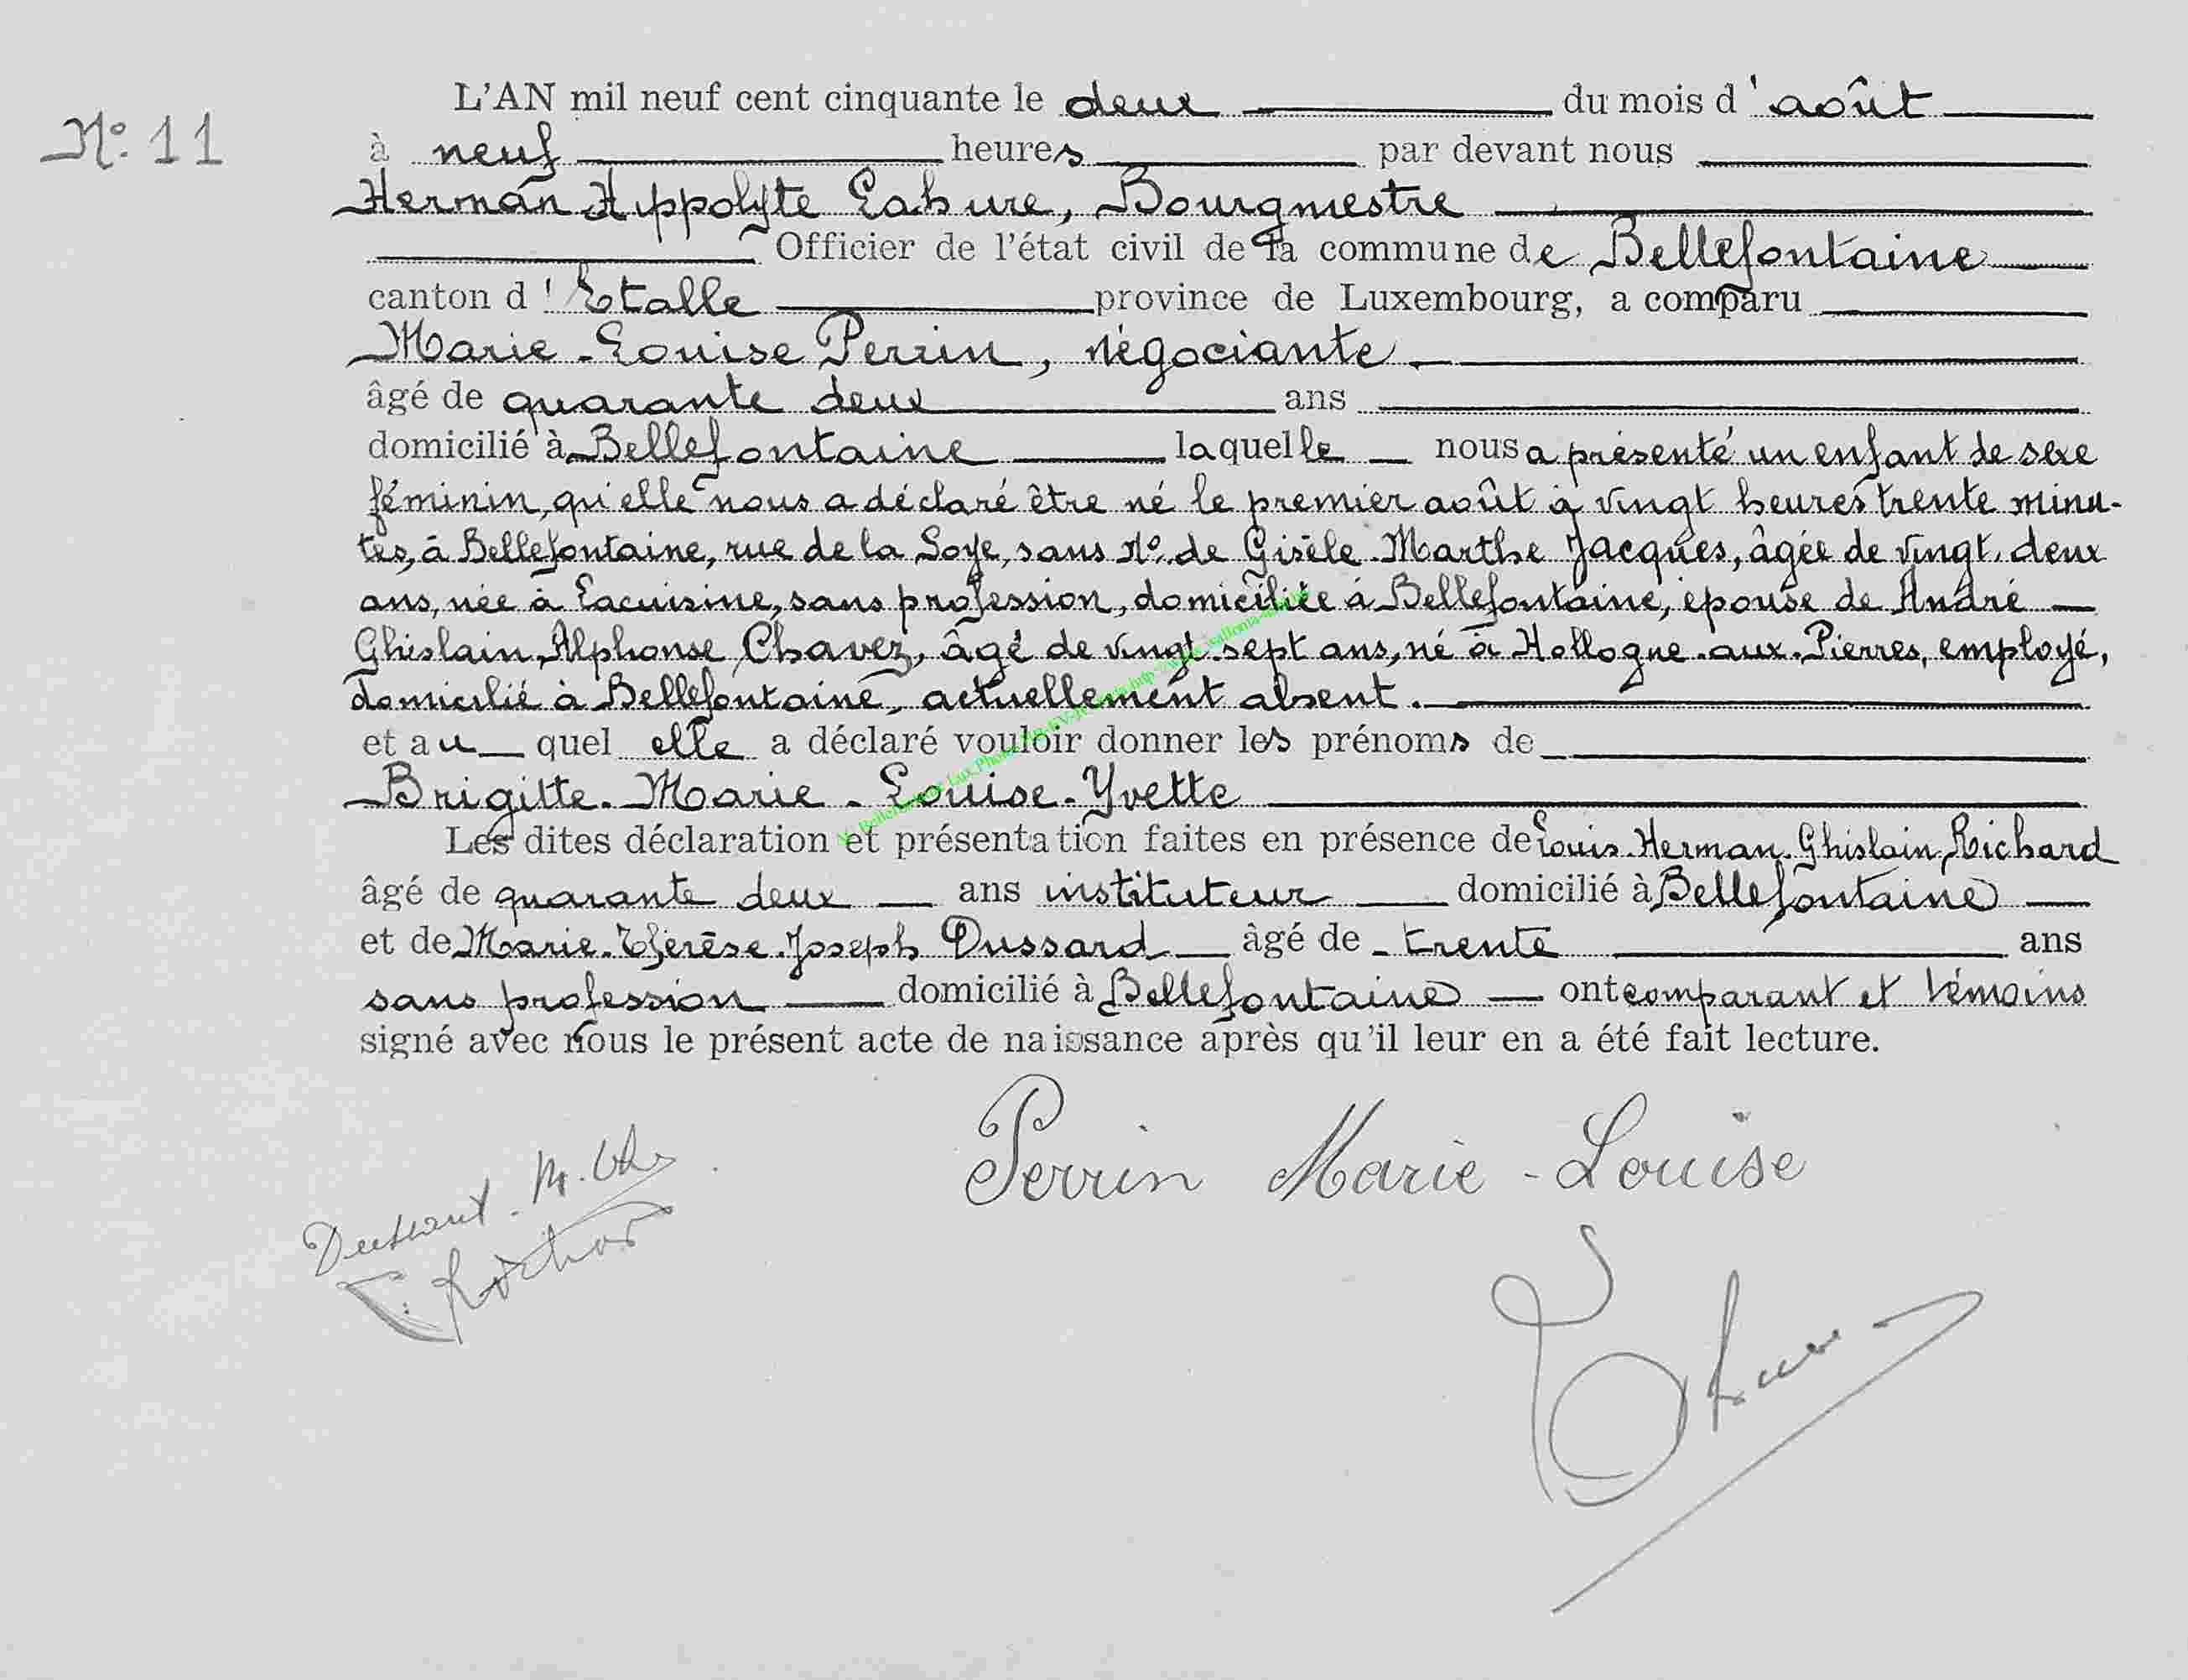 N°: 11
L'AN mil neuf cent cinquante le deux du mois d'août
à neuf heures par devant nous
Herman Hippolyte Lahure, Bourgmestre
Officier de l'état civil de la commune de Bellefontaine
canton d'Etalle province de Luxembourg, a comparu
Marie-Louise Perrin, négociante
âgé de quarante deux ans
domicilié à Bellefontaine laquelle nous a présenté un enfant de sexe
féminin, qu'elle nous a déclaré être né le premier août à vingt heures trente minu-
tes, à Bellefontaine, rue de la Soye, sans N°. de Gisèle-Marthe Jacques, âgée de vingt-deux
ans, née à Lacuisine, sans profession, domiciliée à Bellefontaine, épouse de André
Ghislain-Alphonse Chavez, âgé de vingt-sept ans, né à Hollogne-aux-Pierres, employé,
domicilié à Bellefontaine, actuellement absent.
et au quel elle a déclaré vouloir donner les prénoms de
Brigitte-Marie-Louise-Yvette
Les dites déclaration et présentation faites en présence de Louis-Herman-Ghislain Richard
âgé de quarante deux ans instituteur domicilié à Bellefontaine
et de Marie-Thérèse-Joseph Dussard âgé de trente ans
sans profession domicilié à Bellefontaine ont comparant et témoins
signé avec nous le présent acte de naissance après qu'il leur en a été fait lecture.
Perrin Marie-Louise